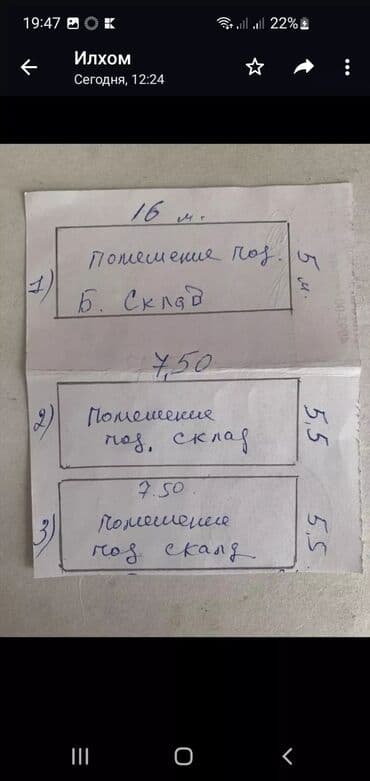 19:47
22%
Илхом
Сегодня, 12:24
16 м.
1)
Помещение под.
Б. Склад
5 м.
7,50
2)
Помещение
под. склад
5,5
7.50
3)
Помещение
под скалд
5,5